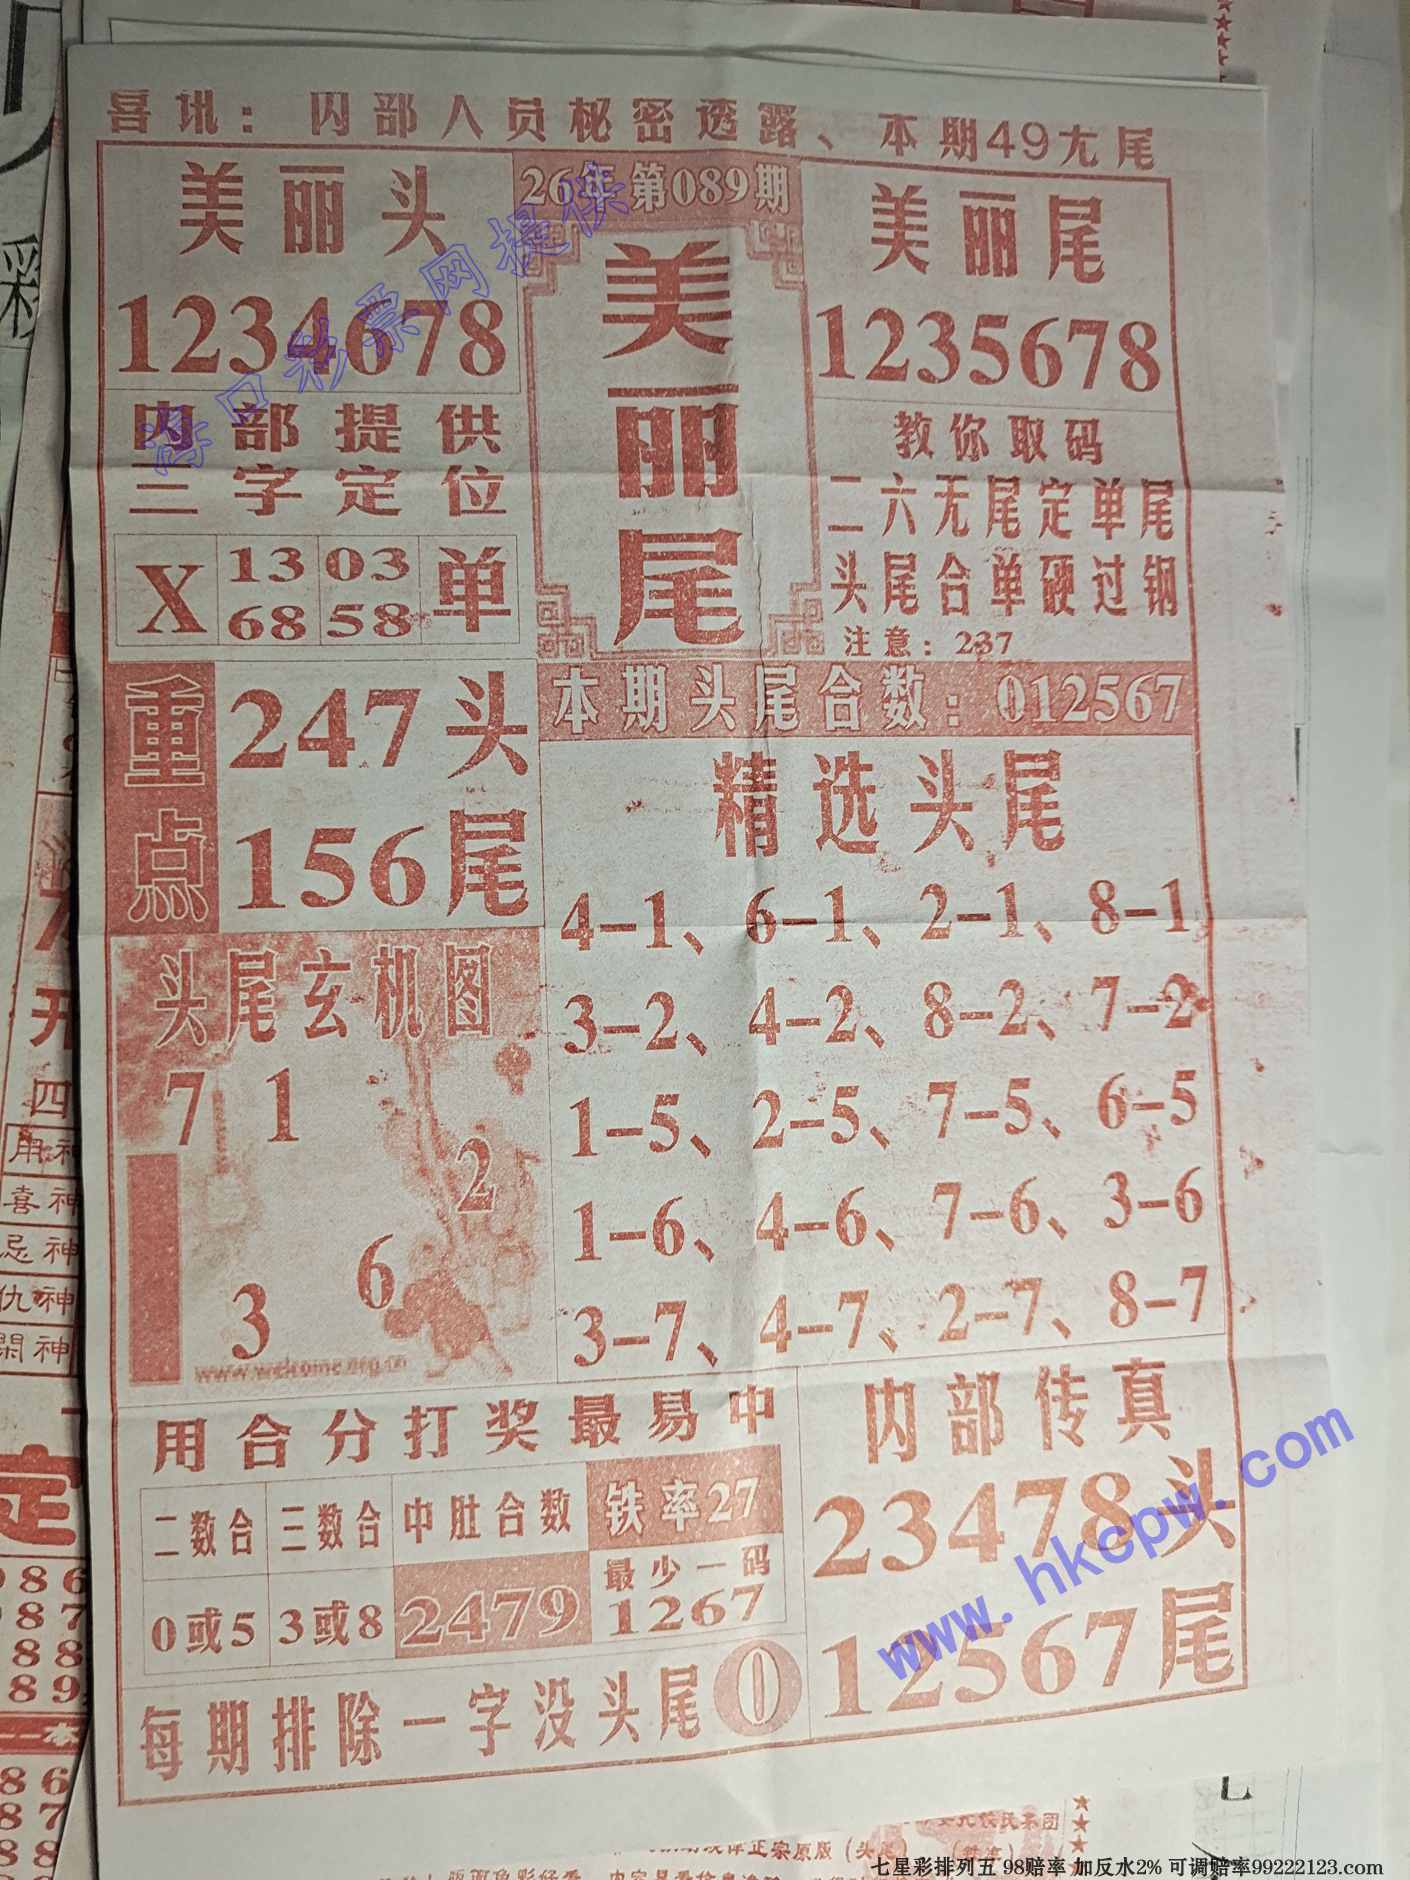 喜讯：内部人员秘密透露、本期49尤尾
美丽头
1234678
26年第089期
美丽尾
美丽尾
1235678
内部提供
三字定位
X 13 68 03 58 单
教你取码
二六无尾定单尾
头尾合单硬过钢
注意：237
重点
247头
156尾
本期头尾合数：012567
精选头尾
4-1、6-1、2-1、8-1
3-2、4-2、8-2、7-2
1-5、2-5、7-5、6-5
1-6、4-6、7-6、3-6
3-7、4-7、2-7、8-7
头尾玄机图
7 1
2
6
3
www.welcome.org.cn
用合分打奖最易中
二数合 三数合 中肚合数 铁率27
0或5 3或8 2479 最少一码
1267
内部传真
23478头
12567尾
每期排除一字没头尾0
海口彩票网提供
www.hkcpw.com
彩
四
用神
喜神
忌神
仇神
閑神
定
七星彩排列五 98赔率 加反水2% 可调赔率99222123.com